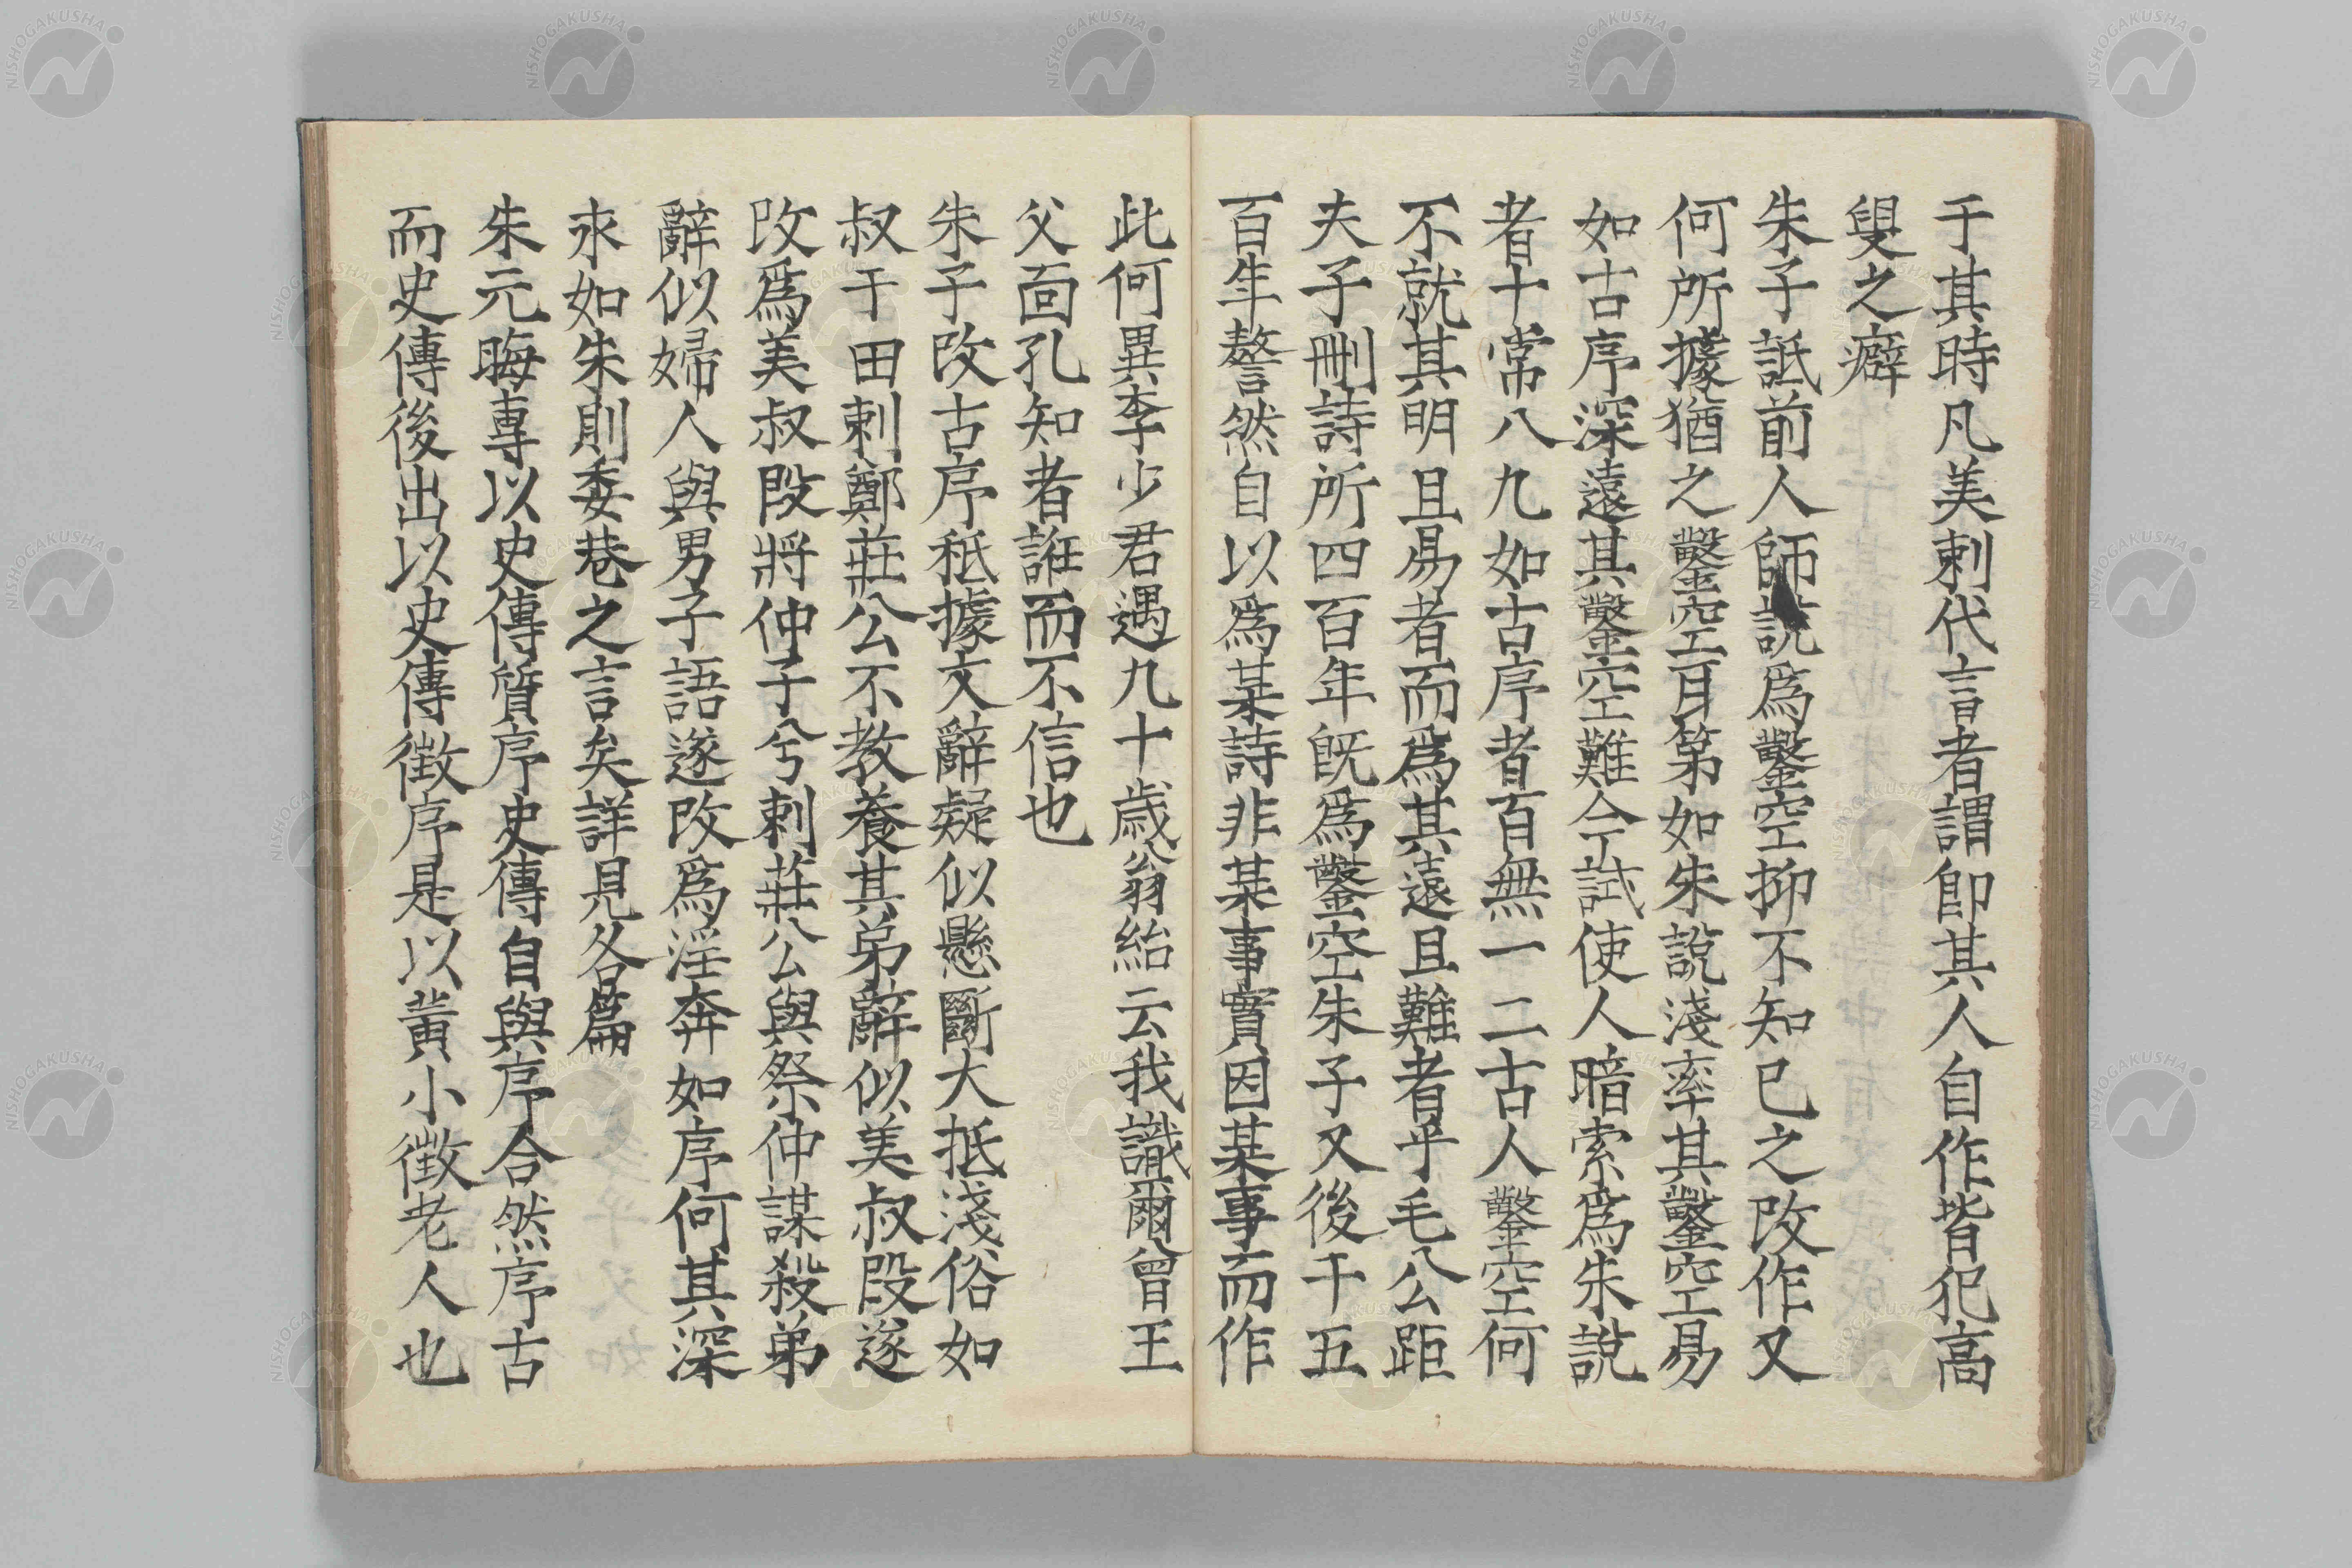 于其時凡美刺代言者謂卽其人自作皆犯高
叟之癖
朱子詆前人師說爲鑿空抑不知已之改作又
何所據猶之鑿空耳第如朱說淺率其鑿空易
如古序深遠其鑿空難今試使人暗索爲朱說
者十常八九如古序者百無一二古人鑿空何
不就其明且易者而爲其遠且難者乎毛公距
夫子刪詩所四百年旣爲鑿空朱子又後千五
百年謷然自以爲某詩非某事實因某事而作
此何異李少君遇九十歲翁紿云我識爾曾王
父面孔知者誰而不信也
朱子改古序秪據文辭疑似懸斷大抵淺俗如
叔于田刺鄭莊公不教養其弟辭似美叔段遂
改爲美叔段將仲子兮刺莊公與祭仲謀殺弟
辭似婦人與男子語遂改爲淫奔如序何其深
求如朱則委巷之言矣詳見各篇
朱元晦專以史傳質序史傳自與序合然序古
而史傳後出以史傳徵序是以黃小徵老人也
NISHOGAKUSHA